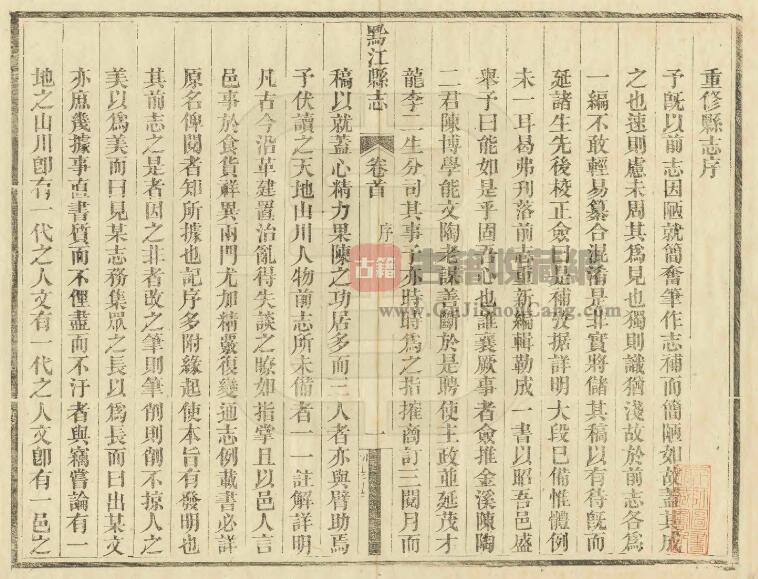 重修縣志序
予旣以前志因陋就簡奮筆作志補而簡陋如故蓋其成
之也速則慮未周其爲見也獨則識猶淺故於前志各爲
一編不敢輕易纂合混淆是非實將儲其稿以有待旣而
延諸生先後校正僉曰是補攷据詳明大段已備惟體例
未一耳曷弗刋落前志重新編輯勒成一書以昭吾邑盛
舉予曰能如是乎固吾心也誰襄厥事者僉推金溪陳陶
二君陳博學能文陶老謀善斷於是聘使主政並延茂才
龍李二生分司其事予亦時時爲之指摧商訂三閱月而
黔江縣志
卷首
序
一
稿以就蓋心精力果陳之功居多而三人者亦與臂助焉
予伏讀之天地山川人物前志所未備者一一註解詳明
凡古今沿革建置治亂得失談之瞭如指掌且以邑人言
邑事於食貨祥異兩門尤加精覈復變通志例載書必詳
原名俾閱者知所據也記序多附緣起使本旨有發明也
其前志之是者因之非者改之筆則筆削則削不掠人之
美以爲美而曰見某志務集眾之長以爲長而曰出某文
亦庶幾據事直書質而不俚盡而不汙者與竊嘗論有一
地之山川卽有一代之人文有一代之人文卽有一邑之
古籍
古籍收藏网
www.GuJiShouCang.com